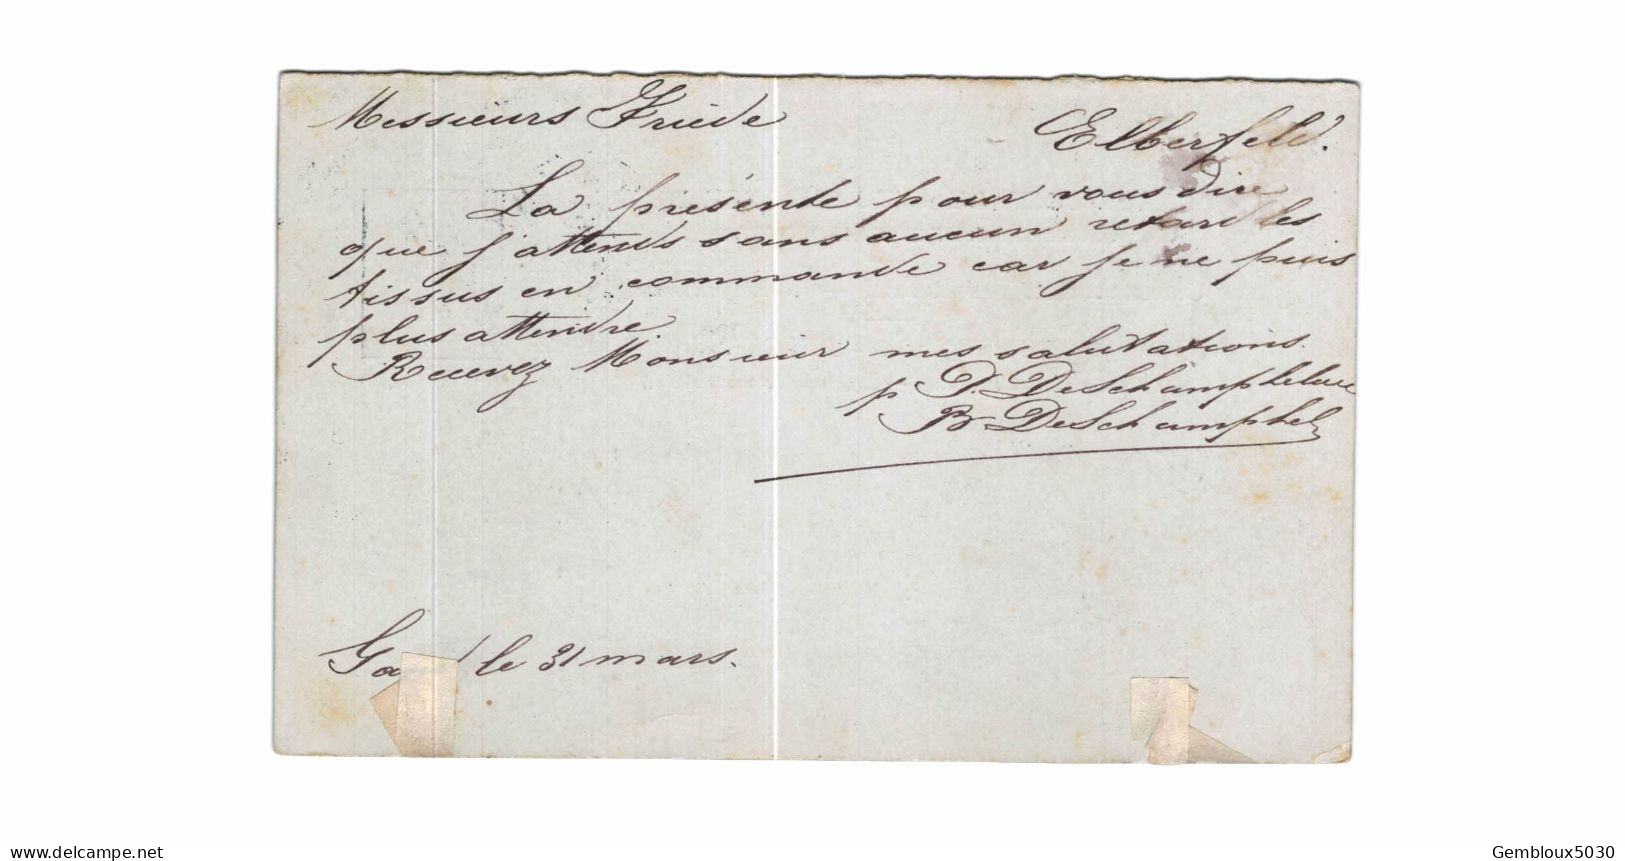 Messieurs Friede Elberfeld.
La présente pour vous dire
que j'attends sans aucun retard les
tissus en commande car je ne puis
plus attendre.
Recevez Monsieur mes salutations.
p D. DeSchamphelaer
Br DeSchamphel
le 31 mars.
delcampe.net
Gembloux5030